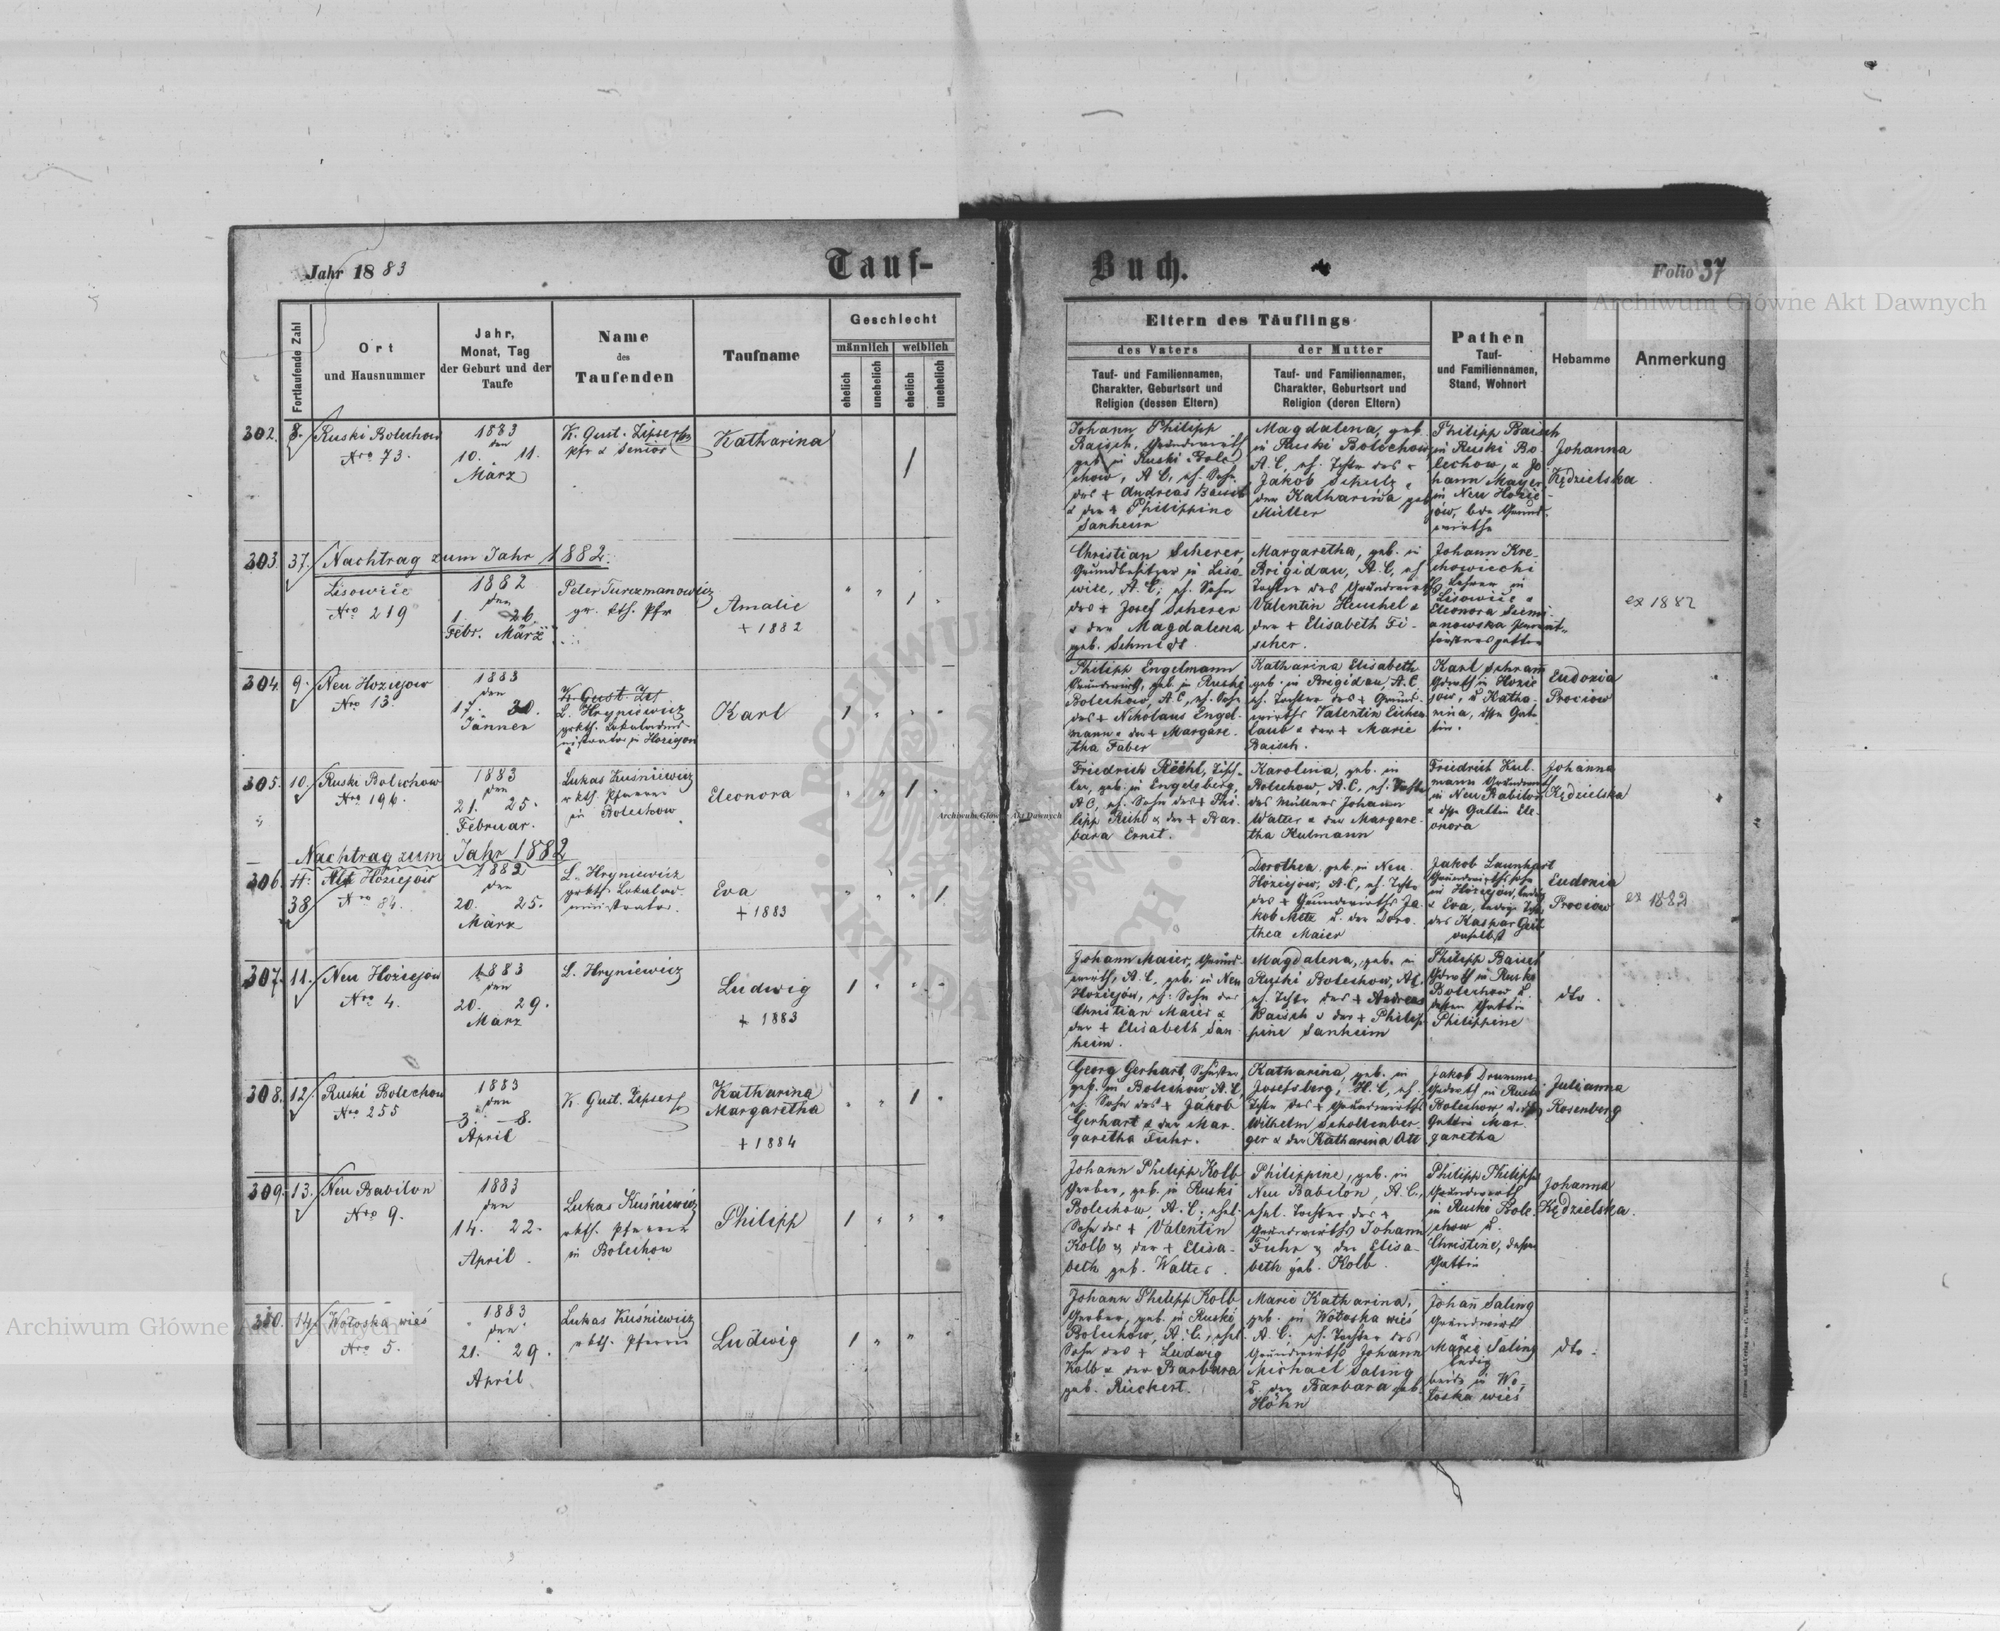 Jahr 1883
Tauf-
Buch.
Folio 37
Archiwum Główne Akt Dawnych
Fortlaufende Zahl
Ort
und Hausnummer
Jahr,
Monat, Tag
der Geburt und der
Taufe
Name
des
Taufenden
Taufname
Geschlecht
männlich weiblich
ehelich unehelich ehelich unehelich
Eltern des Täuflings
des Vaters
Tauf- und Familiennamen,
Charakter, Geburtsort und
Religion (dessen Eltern)
der Mutter
Tauf- und Familiennamen,
Charakter, Geburtsort und
Religion (deren Eltern)
Pathen
Tauf-
und Familiennamen,
Stand, Wohnort
Hebamme
Anmerkung
302. 8.
Ruski Bolechow
Nro 73.
1883
den
10. 11.
März
K. Gust. Zipser
Pfr & Senior
Katharina
1
Johann Philipp
Baisch, Grundwirth
geb. in Ruski Bole
chow, A.C., eh. Sohn
des + Andreas Baisch
& der + Philippine
Sanheim
Magdalena, geb.
in Ruski Bolechow
A.C, eh. Tchtr des +
Jakob Schulz &
der Katharina geb
Müller
Philipp Baisch
in Ruski Bo-
lechow, & Jo
hann Mayer
in Neu Hozie
jow, bde Grund-
wirthe
Johanna
Kędzielska
303. 37.
Nachtrag zum Jahr 1882.
Lisowice
Nro 219
1882
den
1. 26.
Febr. März
Peter Turczmanowicz
gr. kth. Pfr
Amalie
+ 1882
1
Christian Scherer,
Grundbesitzer in Liso-
wice, A.C; eh. Sohn
des + Josef Scherer
& der Magdalena
geb. Schmidt
Margaretha, geb. in
Brigidau, A.C, eh
Tochter des Grundwirths
Valentin Heuchel &
der + Elisabeth Fi-
scher.
Johann Kre-
chowiecki
Lehrer in
Lisowice &
Eleonora
försters gattin
ex 1882
304. 9.
Neu Hoziejow
Nro 13.
1883
den
17. 30.
Jänner
K. Gust. Zip
L. Hryniewicz
grkth. Lokaladmi
nistrator in Hoziejow
Karl
1
Philipp Engelmann
Grundwirth, geb. in Ruski
Bolechow, A.C, eh. Sohn
des + Nikolaus Engel-
mann & der + Margare-
tha Faber
Katharina Elisabeth
geb. in Brigidau, A.C.
eh. Tochter des + Grund-
wirths Valentin Eichen
laub & der + Marie
Baisch.
Karl Schram
Grdwrth in Hozie
jow, u Katha-
rina, dssn Gat-
tin.
Eudoxia
Prociow
305. 10.
Ruski Bolechow
Nro 196.
1883
den
21. 25.
Februar.
Lukas Kuśniewicz
rkth. Pfarrer
in Bolechow
Eleonora
1
Friedrich Rühl, Tisch-
ler, geb. in Engelsberg,
A.C, eh. Sohn des + Phi
lipp Rühl & der + Bar-
bara Ernst.
Karolina, geb. in
Bolechow, A.C, eh. Tochter
des Müllers Johann
Walter & der Margare-
tha Kulmann
Friedrich Kul-
mann Grundwrth
in Neu Babilon
& dssn Gattin Ele-
onora
Johanna
Kędzielska
Nachtrag zum Jahr 1882
306. 11. 38
Alt Hoziejow
Nro 84.
1882
den
20. 25.
März
L. Hryniewicz
grkth. Lokalad-
ministrator.
Eva
+ 1883
1
Dorothea geb. in Neu
Hoziejow, A.C, eh. Tchtr
des + Grundwirths Ja
kob Metz u. der Doro-
thea Maier
Jakob Launhart
Grundwirthssohn
in Hoziejow, ledig
& Eva, ledige Tchtr
des Kaspar
daselbst
Eudoxia
Prociow
ex 1882
307. 11.
Neu Hoziejow
Nro 4.
1883
den
20. 29.
März
L. Hryniewicz
Ludwig
+ 1883
1
Johann Maier, Grund
wirth, A.C, geb. in Neu
Hoziejow, eh. Sohn des
Christian Maier &
der + Elisabeth San
heim.
Magdalena, geb. in
Ruski Bolechow, A.C
eh. Tchtr des + Andreas
Baisch & der + Philip
pine Sanheim
Philipp Baisch
Grdwrth in Ruski
Bolechow u.
dessen Gattin
Philippine
dto.
308. 12.
Ruski Bolechow
Nro 255
1883
den
3. 8.
April
K. Gust. Zipser
Katharina
Margaretha
+ 1884
1
Georg Gerhart, Schuster
geb. in Bolechow, A.C,
eh. Sohn des + Jakob
Gerhart & der Mar-
garetha Fuhr.
Katharina, geb. in
Josefsberg, H.C, eh.
Tchtr des + Grundwirths
Wilhelm Schollenber
ger & der Katharina Ott
Jakob Drumm
Grdwrth in Ruski
Bolechow u. dssn
Gattin Mar-
garetha
Julianna
Rosenberg
309. 13.
Neu Babilon
Nro 9.
1883
den
14. 22.
April.
Lukas Kuśniewicz
rkth. Pfarrer
in Bolechow
Philipp
1
Johann Philipp Kolb
Gerber, geb. in Ruski
Bolechow, A.C; ehel.
Sohn des + Valentin
Kolb & der + Elisa-
beth geb. Walter.
Philippine, geb. in
Neu Babilon, A.C,
ehel. Tochter des +
Grundwirths Johann
Fuhr & der Elisa-
beth geb. Kolb.
Philipp Philipps
Grundwirth
in Ruski Bole-
chow u.
Christine, dessen
Gattin
Johanna
Kędzielska.
310. 14.
Wołoska wieś
Nro 5.
1883
den
21. 29.
April
Lukas Kuśniewicz
rkth. Pfarrer
Ludwig
1
Johann Philipp Kolb
Gerber, geb. in Ruski
Bolechow, A.C, ehel.
Sohn des + Ludwig
Kolb & der Barbara
geb. Rückert.
Marie Katharina,
geb. in Wołoska wieś
A.C; eh. Tochter des
Grundwirths Johann
Michael Saling
u. der Barbara geb.
Höhn
Johann Saling
Grundwirth
&
Marie Saling
ledig
beide in Wo-
łoska wieś
dto.